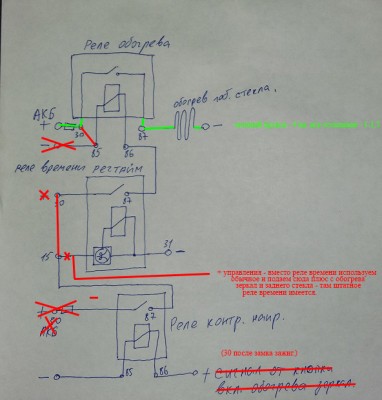 Реле обогрева
АКБ
+
30
87
обогрев лоб. стекла.
–
–
85
86
реле времени регтайм
30
87
15
31 –
* управления - вместо реле времени используем
обычное и подаем сюда плюс с обогрева
зеркал и заднего стекла - там штатное
реле времени имеется.
–
87
АКБ
Реле контр. напр.
(30 после замка зажиг.)
–
85
86
+ сигнал от кнопки
вкл. обогрева зеркал.